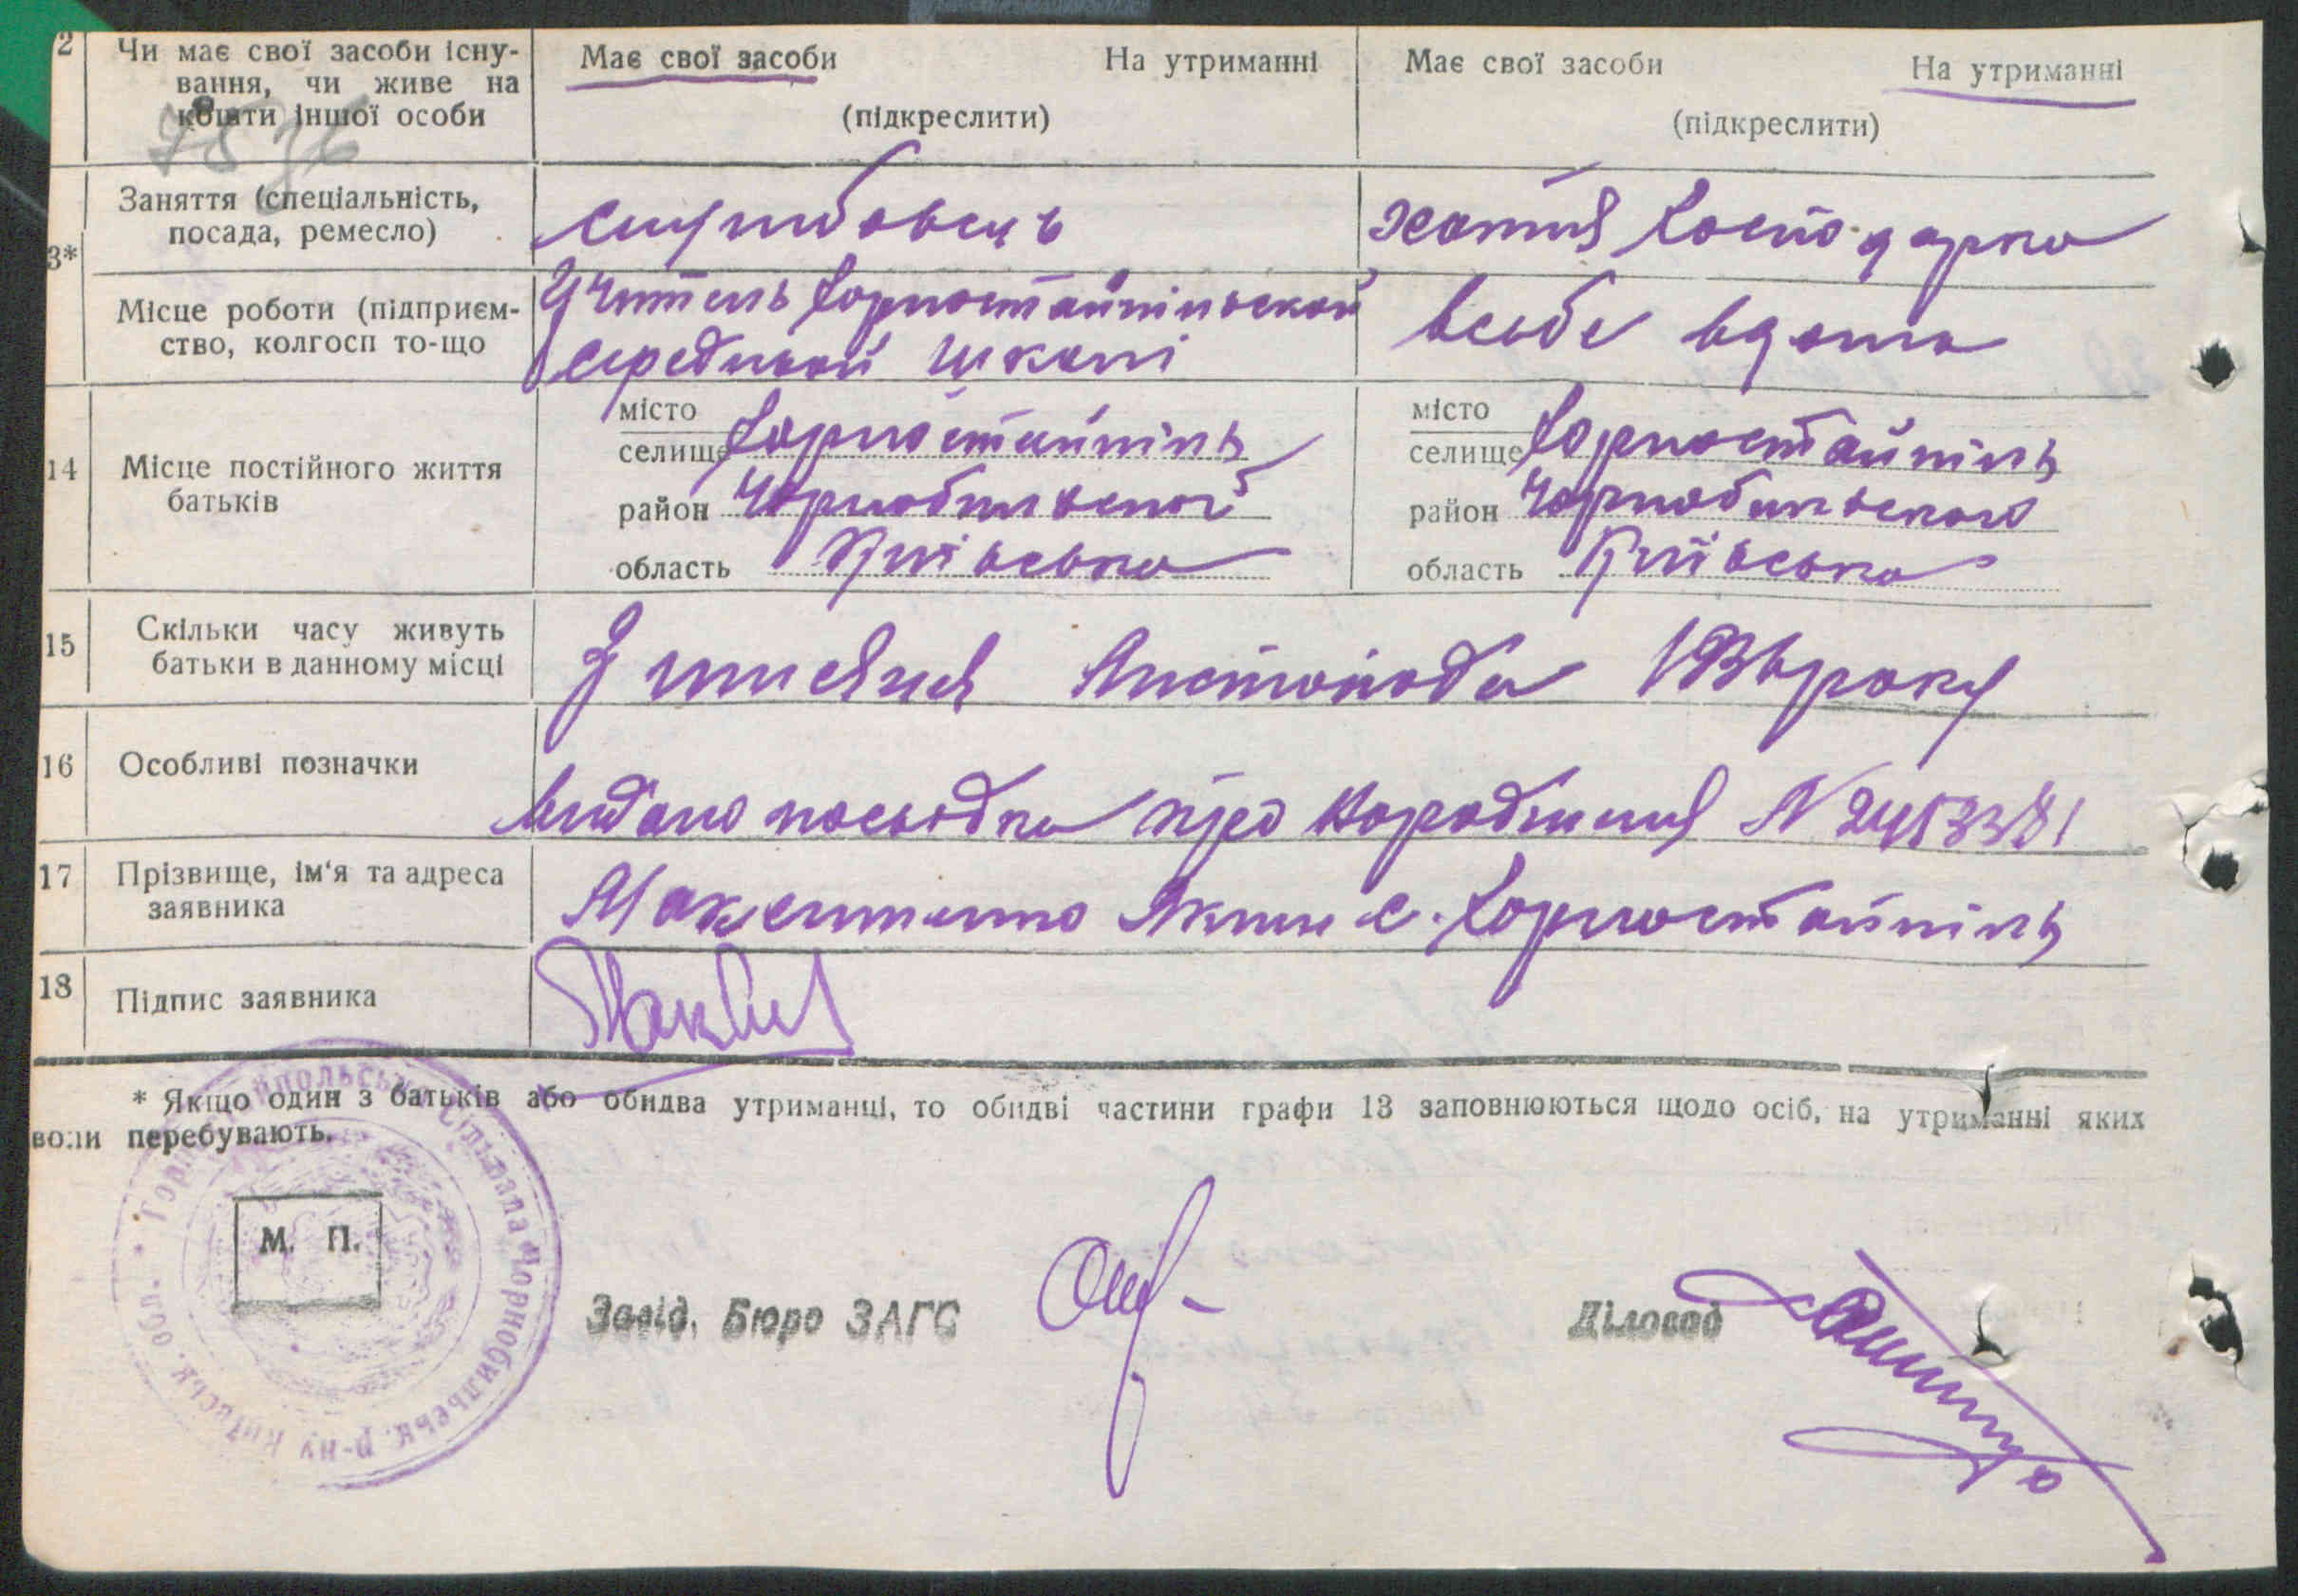 2 Чи має свої засоби існу- Має свої засоби На утриманні Має свої засоби На утриманні
вання, чи живе на
кошти іншої особи (підкреслити) (підкреслити)
Заняття (спеціальність, службовець хатня господарка
посада, ремесло)
3*
Місце роботи (підприєм- Учитель Горностайпільской в себе вдома
ство, колгосп то-що середньой школі
місто місто
селище Горностайпіль селище Горностайпіль
14 Місце постійного життя
батьків
район Чорнобильской район Чорнобильского
область Київська область Київська
15 Скільки часу живуть З Листопада року
батьки в данному місці
16 Особливі позначки
видано посьвідка про народження N 2453381
17 Прізвище, ім'я та адреса Максименко Яким с. Горностайпіль
заявника
18 Підпис заявника
* Якщо один з батьків або обидва утриманці, то обидві частини графи 13 заповнюються щодо осіб, на утриманні яких
вони перебувають.
М. П.
Завід. Бюро ЗАГС Діловод
Чорнобильськ. р-ну Київськ. обл.